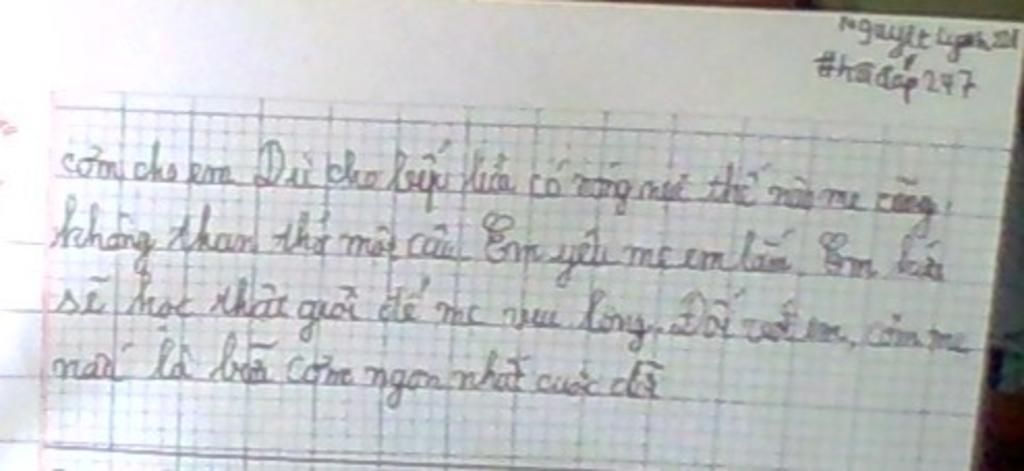 Nguyệt
#hỏiđáp247
cơm cho em Dù cho bếp lửa có nóng nực thế nào mẹ cũng
không than thở một câu Em yêu mẹ em lắm. Em hứa
sẽ học thật giỏi để mẹ vui lòng. Đối với em, cơm mẹ
nấu là bữa cơm ngon nhất cuộc đời